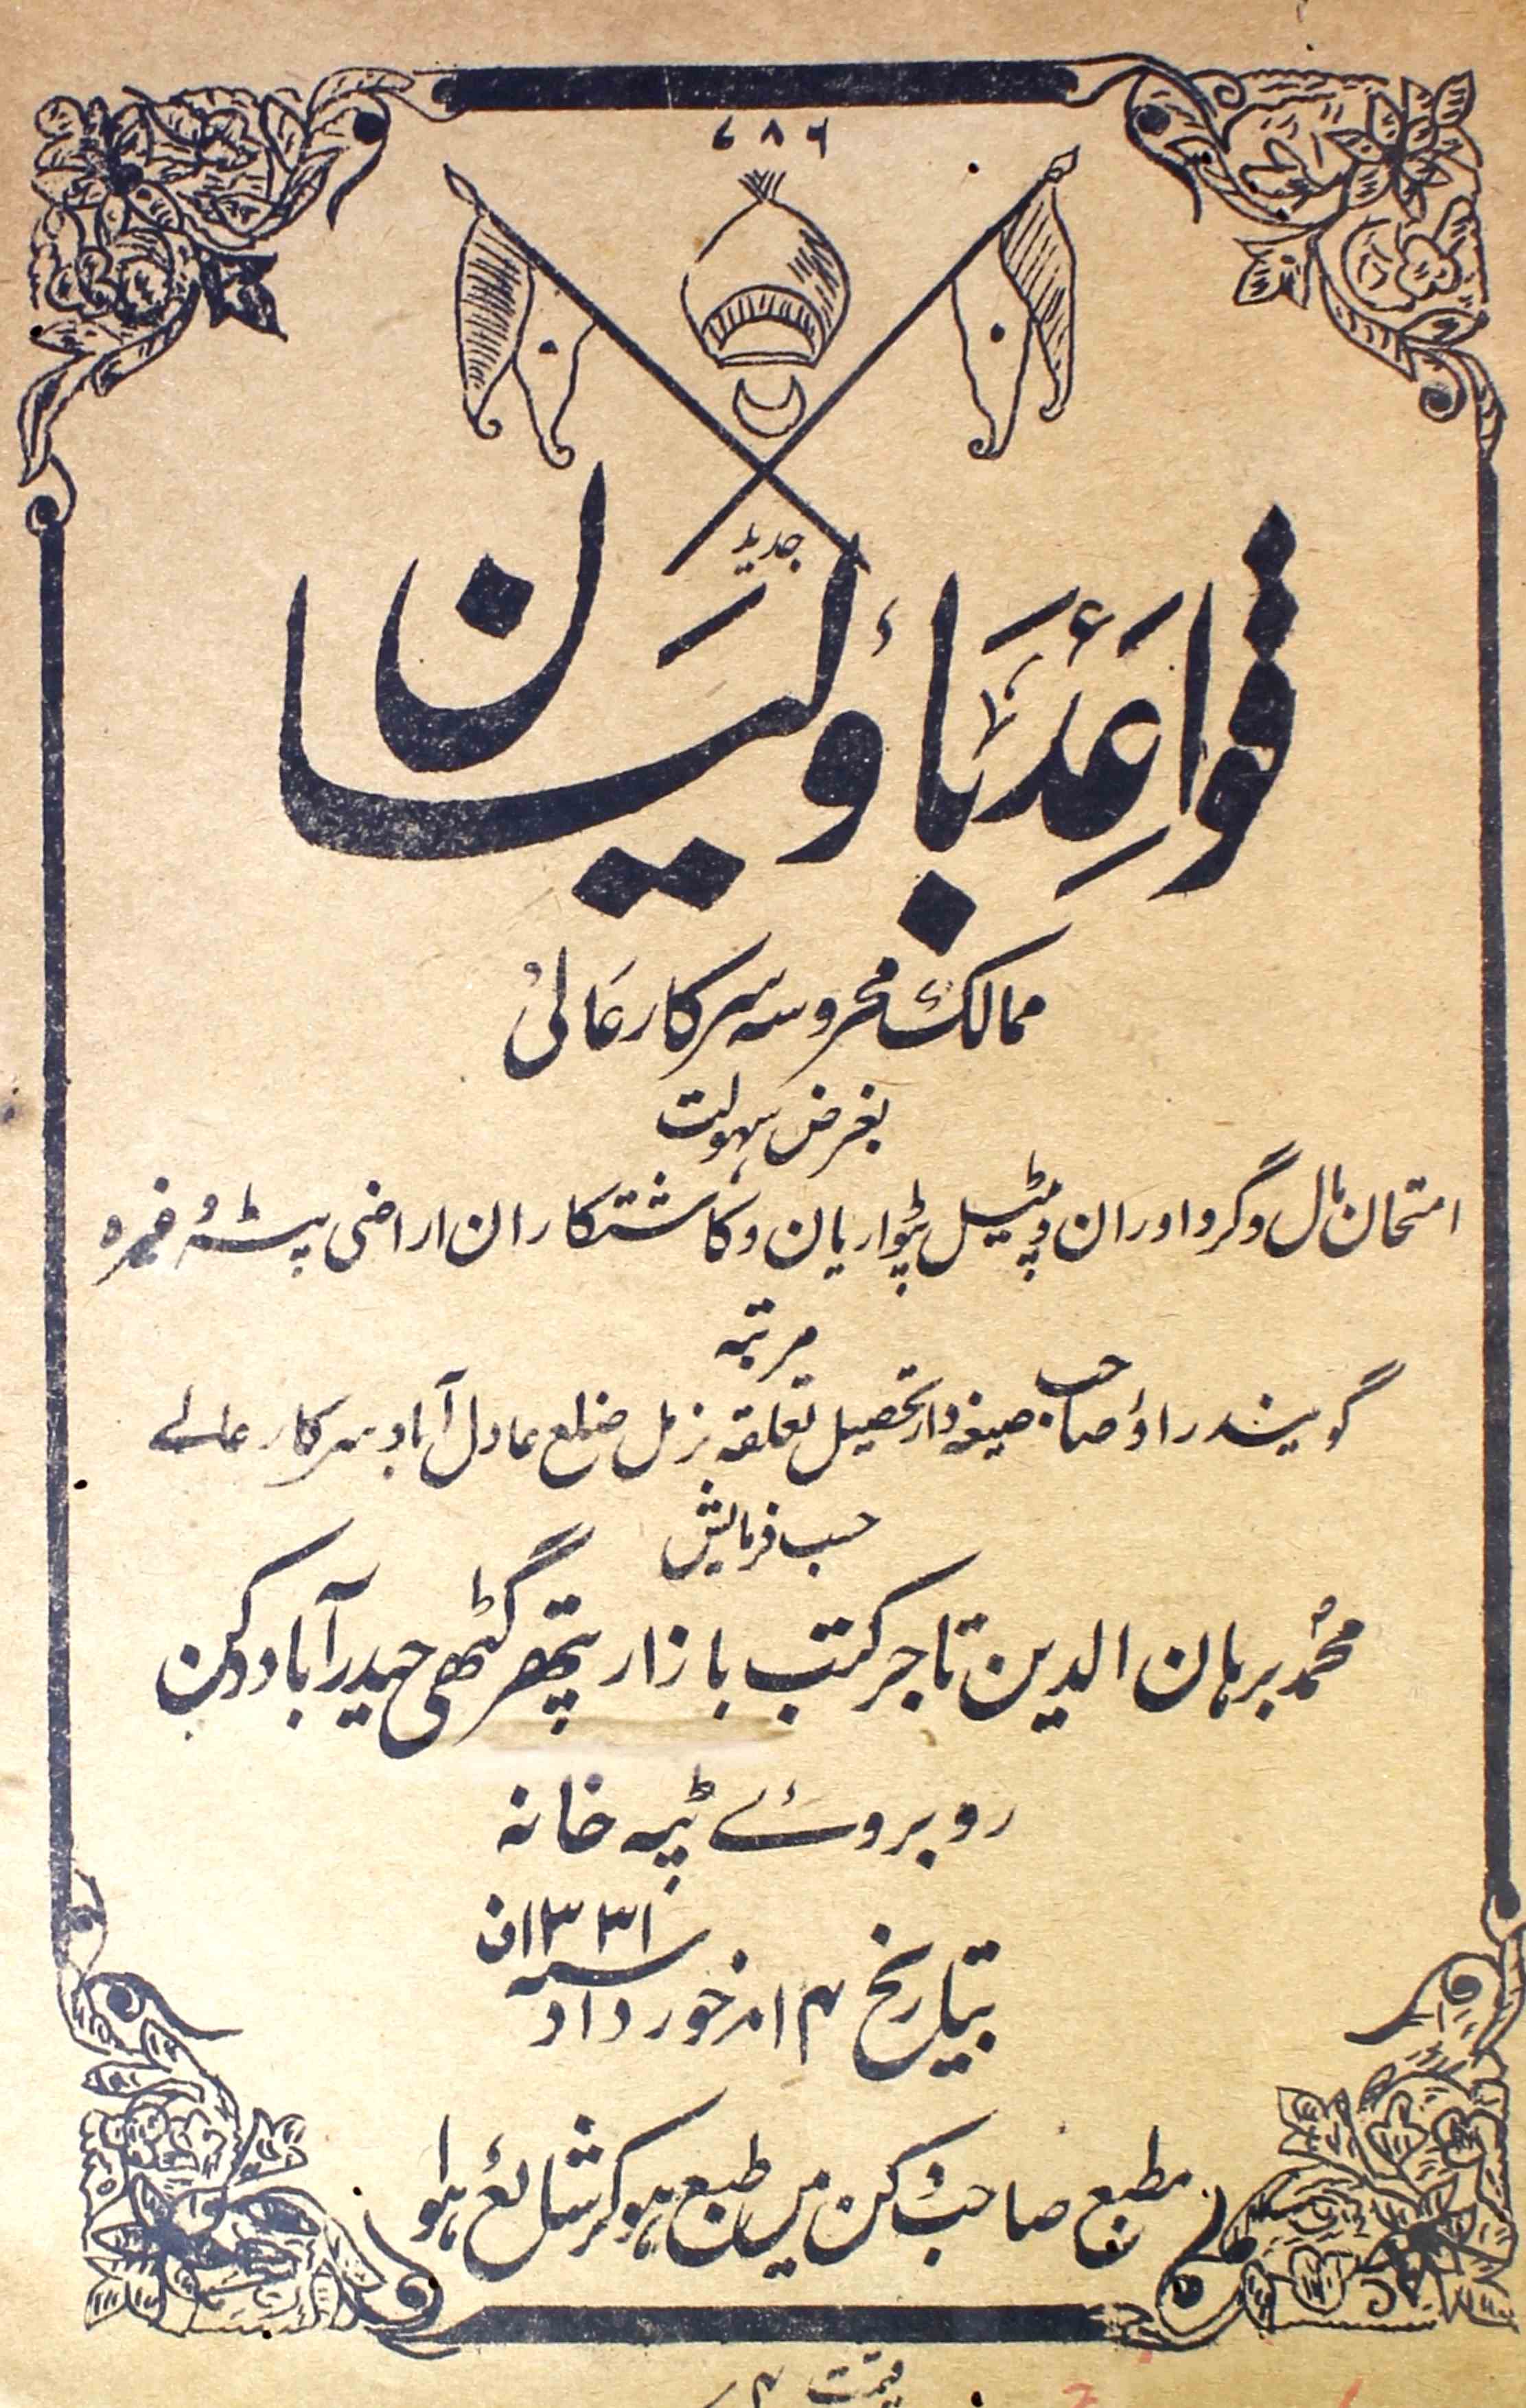 ۷۸۶
جدید
قواعد باؤلیان
ممالک محروسہ سرکار عالی
بغرض سہولت
امتحان مال و گرداوران و پٹیل پٹواریان و کاشتکاران اراضی پٹہ وغیرہ
مرتبہ
گویندراؤ صاحب صیغہ دار تحصیل تعلقہ نرمل ضلع عادل آباد سرکار عالے
حسب فرمایش
محمد برہان الدین تاجر کتب بازار پتھر گٹھی حیدرآباد دکن
روبروئے ٹپہ خانہ
بتاریخ ۱۴ امرخورداد سنہ ۱۳۳۱ف
مطبع صاحب دکن میں طبع ہوکر شائع ہوا
قیمت ۴